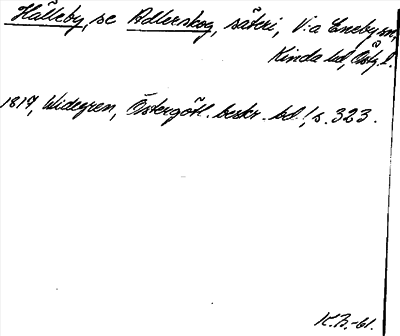 Hälleby, se Adlerskog, säteri, V:a Eneby sn,
Kinda hd, Östg. l.
1817, Widegren, Östergötl. beskr. bd 1, s. 323.
K.B.-61.